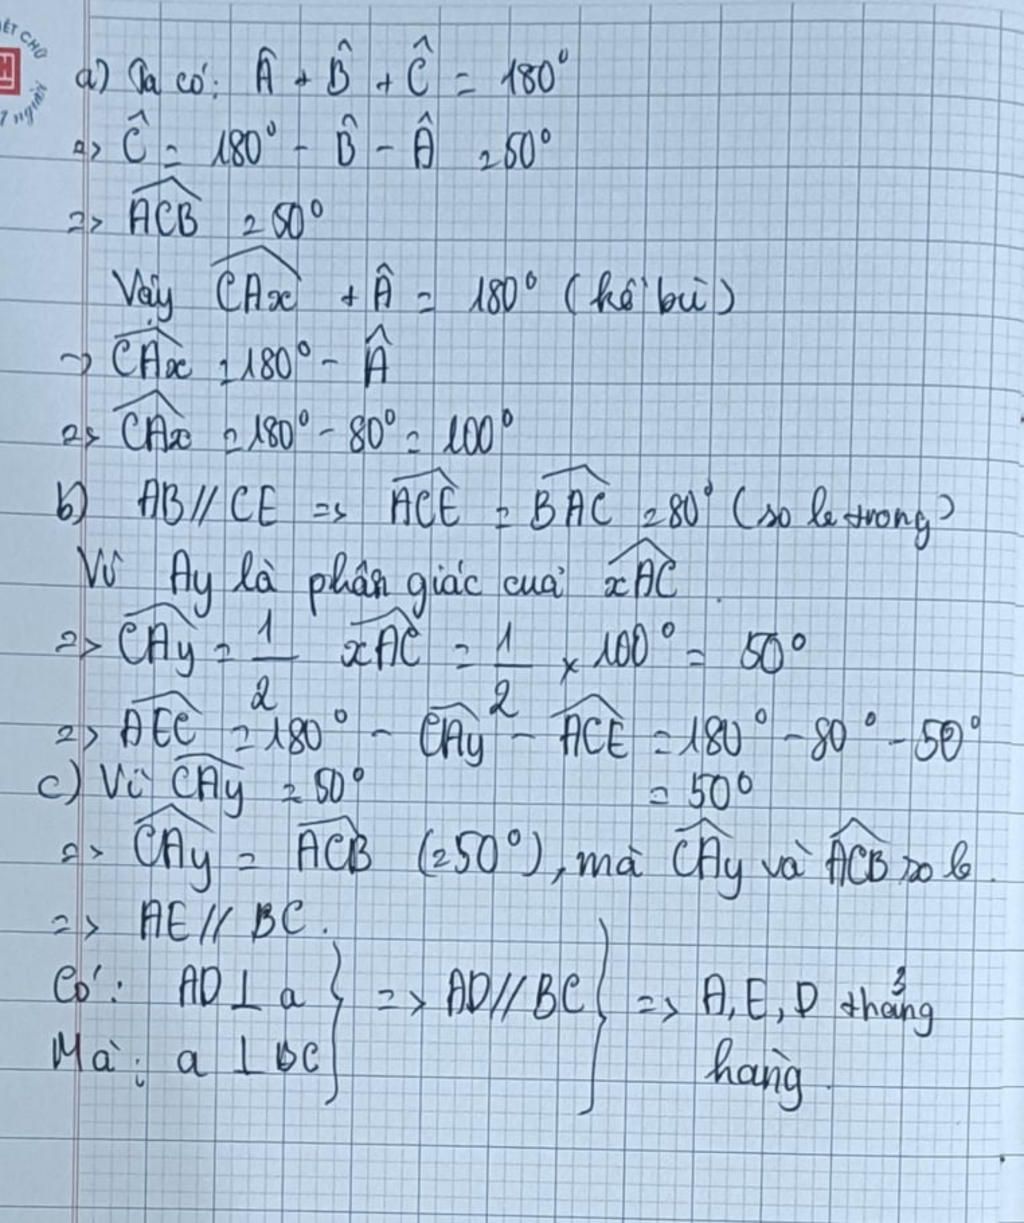 ẾT CHỮ
H
a) Ta có: Â + B̂ + Ĉ = 180°
=> Ĉ = 180° - B̂ - Â = 50°
=> ACB = 50°
Vậy CAx + Â = 180° (kề bù)
=> CAx = 180° - Â
=> CAx = 180° - 80° = 100°
b) AB // CE => ACE = BAC = 80° (so le trong)
Vì Ay là phân giác của xAC
=> CAy = 1/2 xAC = 1/2 x 100° = 50°
=> AEC = 180° - CAy - ACE = 180° - 80° - 50°
= 50°
c) Vì CAy = 50°
=> CAy = ACB (=50°), mà CAy và ACB so le.
=> AE // BC.
Có: AD ⊥ a } => AD // BC } => A, E, D thẳng
Mà: a ⊥ BC
hàng.